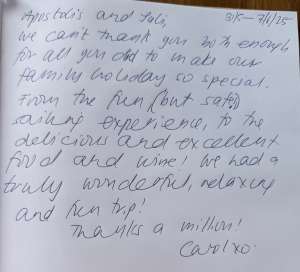 Apostolis and
31/5 – 7/6/25
we can't thank you both enough
for all you did to make our
family holiday so special.
From the fun (but safe!)
sailing experience, to the
delicious and excellent
food and wine! We had a
truly wonderful, relaxing
and fun trip!
Thanks a million!
Carol xo.